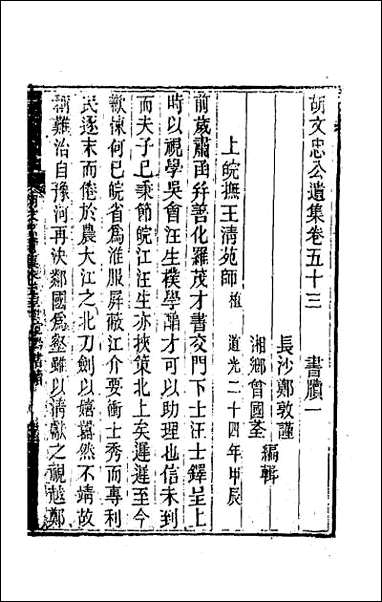 胡文忠公遺集卷五十三　書牘一
長沙鄭敦謹
湘鄉曾國荃　編輯
上皖撫王清苑師植　道光二十四年甲辰
前歲肅函幷善化羅茂才書交門下士汪士鐸呈上
時以視學吳會汪生樸學謝才可以助理也信未到
而夫子已乘節皖江汪生亦挾策北上矣遲遲至今
歉悚何已皖省爲淮服屏蔽江介要衝士秀而專利
民逐末而倦於農大江之北刀劍以嬉囂然不靖故
稱難治自豫河再決鄰國爲壑雖以淸獻之視越鄭